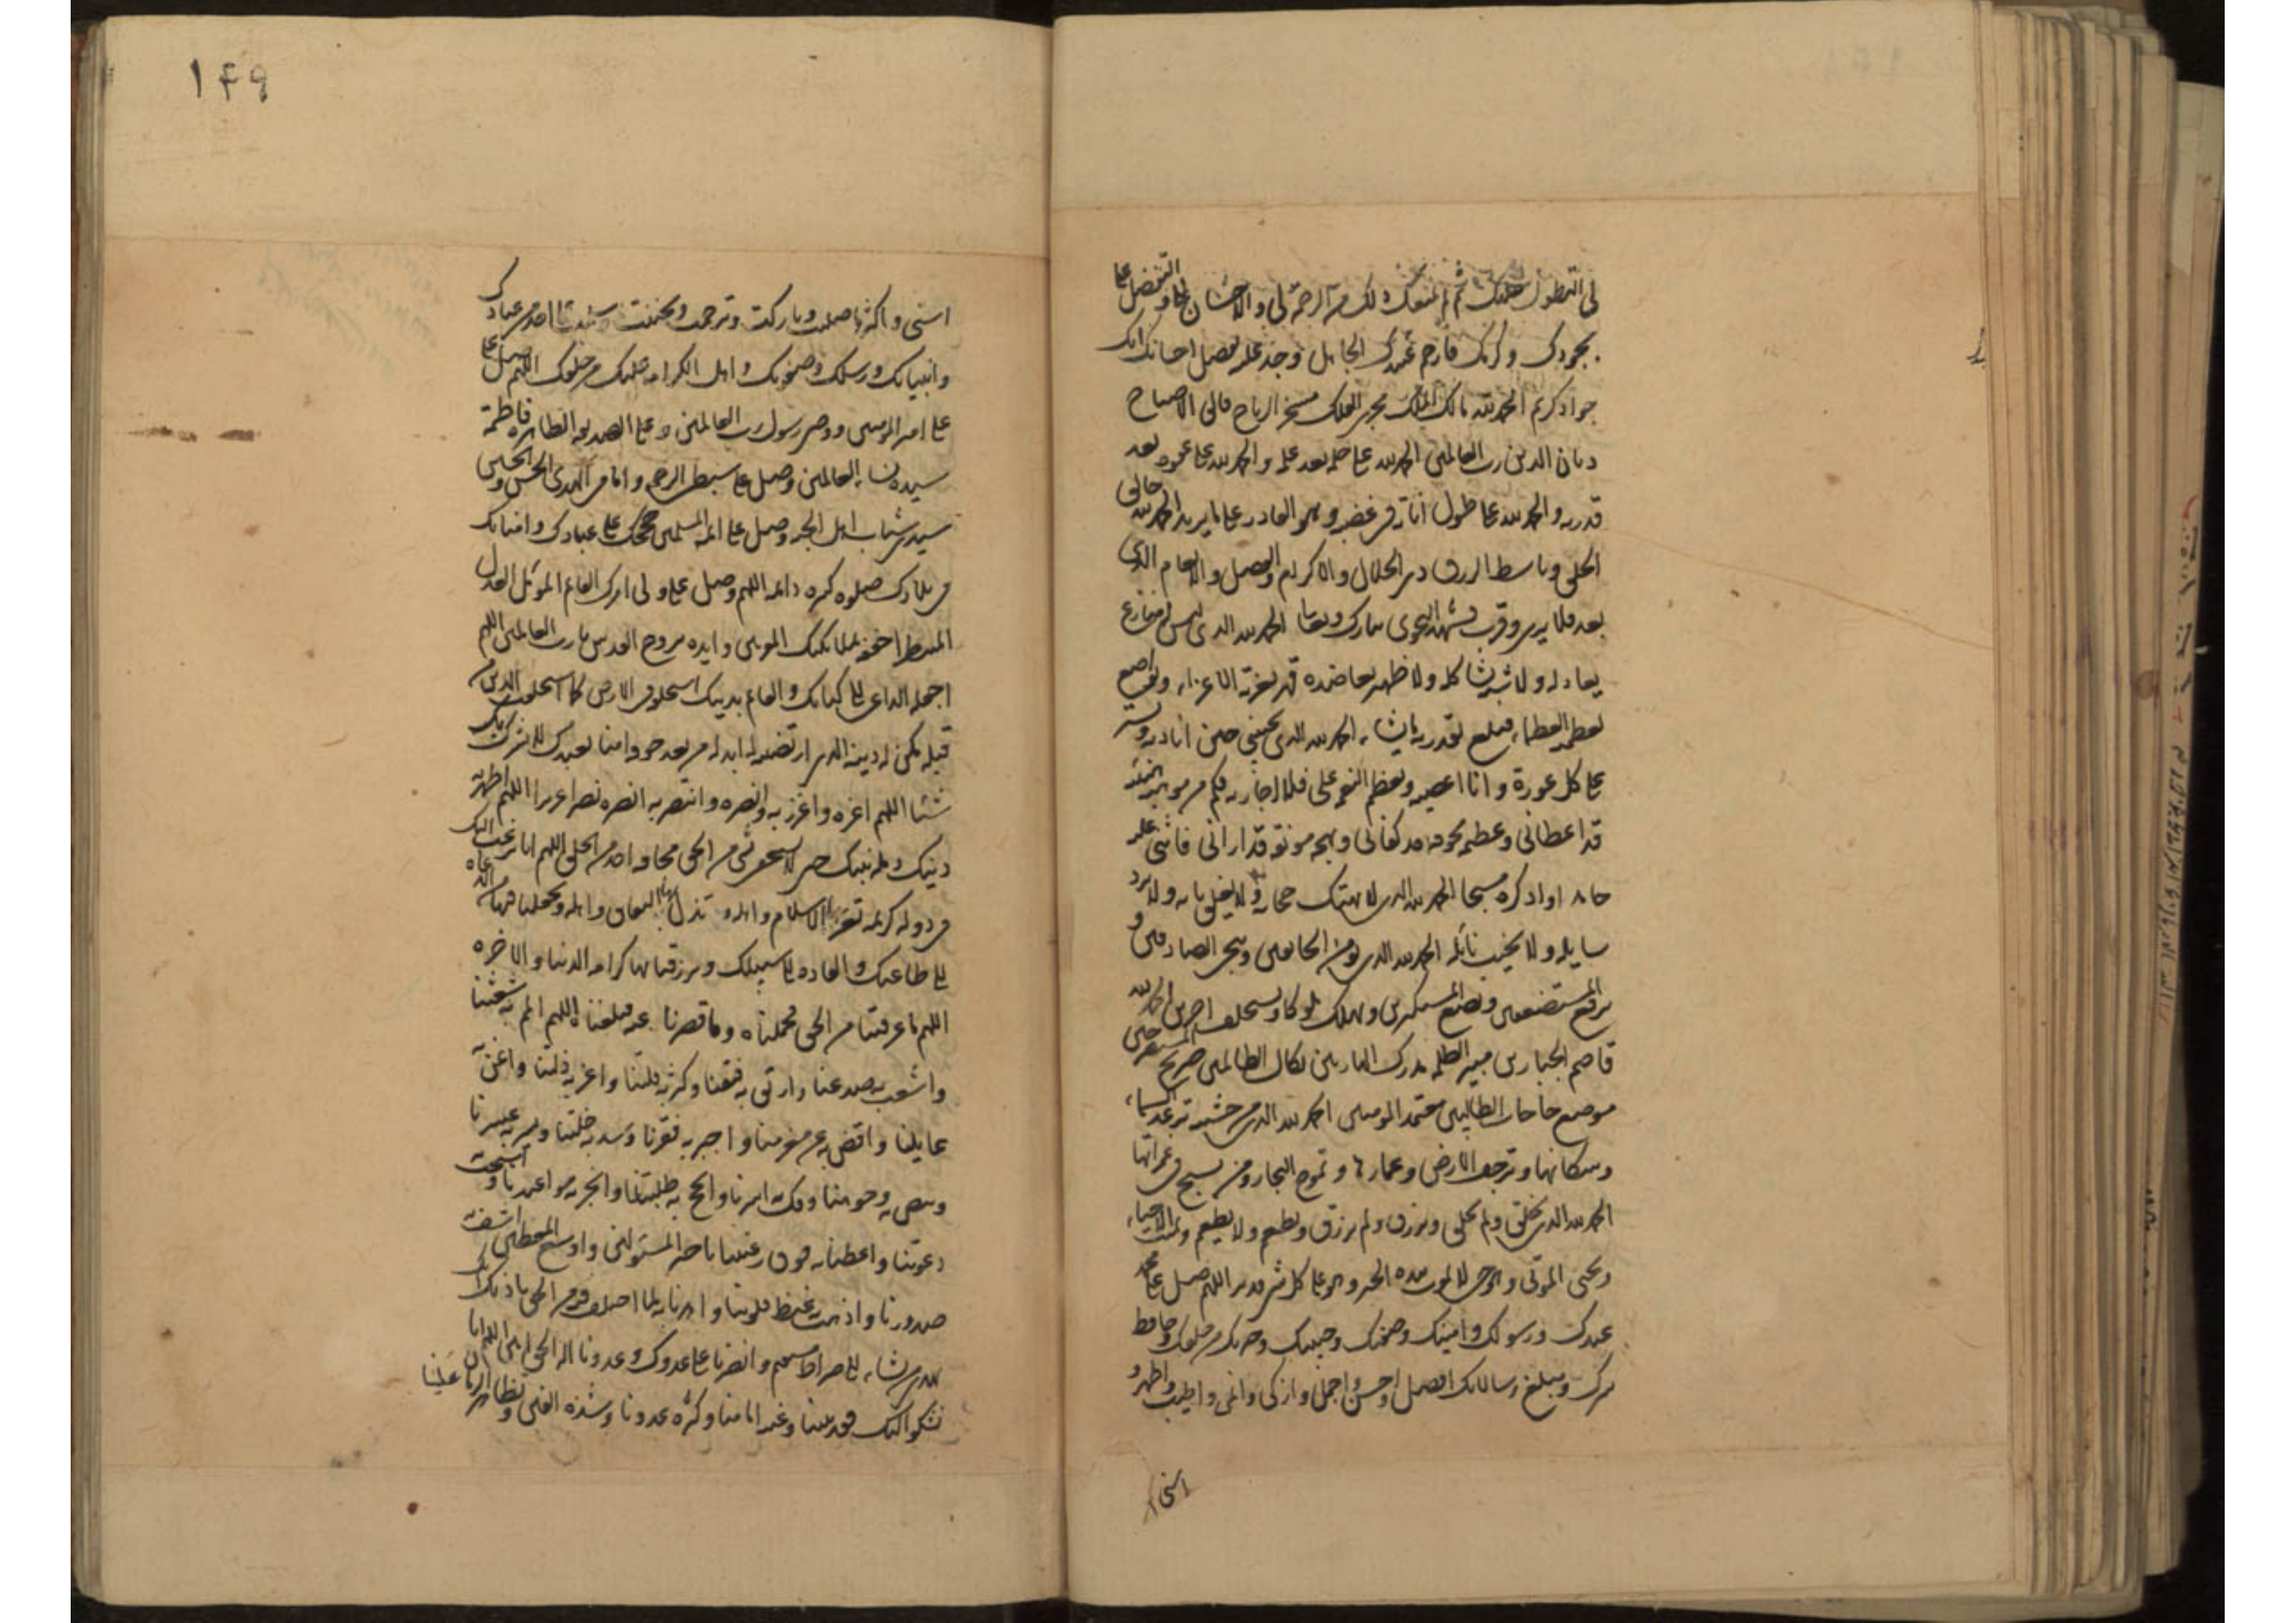 لی التطول علیک ثم لم یمنعک ذلک من الرحمة لی والاحسان الی والتفضل علی
بجودک وکرمک فارحم عبدک الجاهل وجد علیه بفضل احسانک انک
جواد کریم الحمد لله مالک الملک مجری الفلک مسخر الریاح فالق الاصباح
دیان الدین رب العالمین الحمد لله علی حلمه بعد علمه والحمد لله علی عفوه بعد
قدرته والحمد لله علی طول اناته فی غضبه وهو القادر علی ما یرید الحمد لله خالق
الخلق وباسط الرزق ذی الجلال والاکرام والفضل والانعام الذی
بعد فلا یری وقرب فشهد النجوی تبارک وتعالی الحمد لله الذی لیس له منازع
یعادله ولا شبیه یشاکله ولا ظهیر یعاضده قهر بعزته الاعزاء وتواضع
لعظمته العظماء فبلغ بقدرته ما یشاء الحمد لله الذی یجیبنی حین انادیه ویستر
علی کل عورة وانا اعصیه ویعظم النعمة علی فلا اجازیه فکم من موهبة هنیئة
قد اعطانی وعظیمة مخوفة قد کفانی وبهجة مونقة قد ارانی فاثنی علیه
حامدا واذکره مسبحا الحمد لله الذی لا یهتک حجابه ولا یغلق بابه ولا یرد
سایله ولا یخیب نائله الحمد لله الذی یؤمن الخائفین وینجی الصادقین و
یرفع المستضعفین ویضع المستکبرین ویهلک ملوکا ویستخلف اخرین الحمد لله
قاصم الجبارین مبیر الظلمة مدرک الهاربین نکال الظالمین صریخ المستصرخین
موضع حاجات الطالبین معتمد المومنین الحمد لله الذی من خشیته ترعد السماء
وسکانها وترجف الارض وعمارها وتموج البحار ومن یسبح فی غمراتها
الحمد لله الذی یخلق ولم یخلق ویرزق ولم یرزق ویطعم ولا یطعم ویمیت الاحیاء
ویحیی الموتی وهو حی لا یموت بیده الخیر وهو علی کل شی قدیر اللهم صل علی محمد
عبدک ورسولک وامینک وصفیک وحبیبک وخیرتک من خلقک وحافظ
سرک ومبلغ رسالاتک افضل واحسن واجمل وازکی وانمی واطیب واطهر و
اسنی
۱۴۹
اسنی واکثر ما صلیت وبارکت وترحمت وتحننت وسلمت علی احد من عبادک
وانبیائک ورسلک وصفوتک واهل الکرامة علیک من خلقک اللهم صل علی
علی امیر المومنین ووصی رسول رب العالمین وعلی الصدیقة الطاهرة فاطمة
سیدة نساء العالمین وصل علی سبطی الرحمة وامامی الهدی الحسن والحسین
سیدی شباب اهل الجنة وصل علی ائمة المسلمین حججک علی عبادک وامنائک
فی بلادک صلوة کثیرة دائمة اللهم وصل علی ولی امرک القائم المؤمل العدل
المنتظر احففه بملائکتک المقربین وایده بروح القدس یا رب العالمین اللهم
اجعله الداعی الی کتابک والقائم بدینک استخلفه فی الارض کما استخلفت الذین من
قبله مکن له دینه الذی ارتضیته له ابدله من بعد خوفه امنا یعبدک لا یشرک بک
شیئا اللهم اعزه واعزز به وانصره وانتصر به انصره نصرا عزیزا اللهم اظهر به
دینک وملة نبیک حتی لا یستخفی بشی من الحق مخافة احد من الخلق اللهم انا نرغب الیک
فی دولة کریمة تعز بها الاسلام واهله وتذل بها النفاق واهله وتجعلنا فیها من الدعاة
الی طاعتک والقادة الی سبیلک وترزقنا بها کرامة الدنیا والاخرة
اللهم ما عرفتنا من الحق فحملناه وما قصرنا عنه فبلغناه اللهم المم به شعثنا
واشعب به صدعنا وارتق به فتقنا وکثر به قلتنا واعز به ذلتنا واغن به
عایلنا واقض به عن مغرمنا واجبر به فقرنا وسد به خلتنا ویسر به عسرنا
وبیض به وجوهنا وفک به اسرنا وانجح به طلبتنا وانجز به مواعیدنا واستجب
دعوتنا واعطنا به فوق رغبتنا یا خیر المسئولین واوسع المعطین اشف به
صدورنا واذهب به غیظ قلوبنا واهدنا به لما اختلف فیه من الحق باذنک انک
تهدی من تشاء الی صراط مستقیم وانصرنا علی عدوک وعدونا اله الحق امین اللهم انا
نشکو الیک فقد نبینا وغیبة امامنا وکثرة عدونا وشدة الفتن وتظاهر الزمان علینا